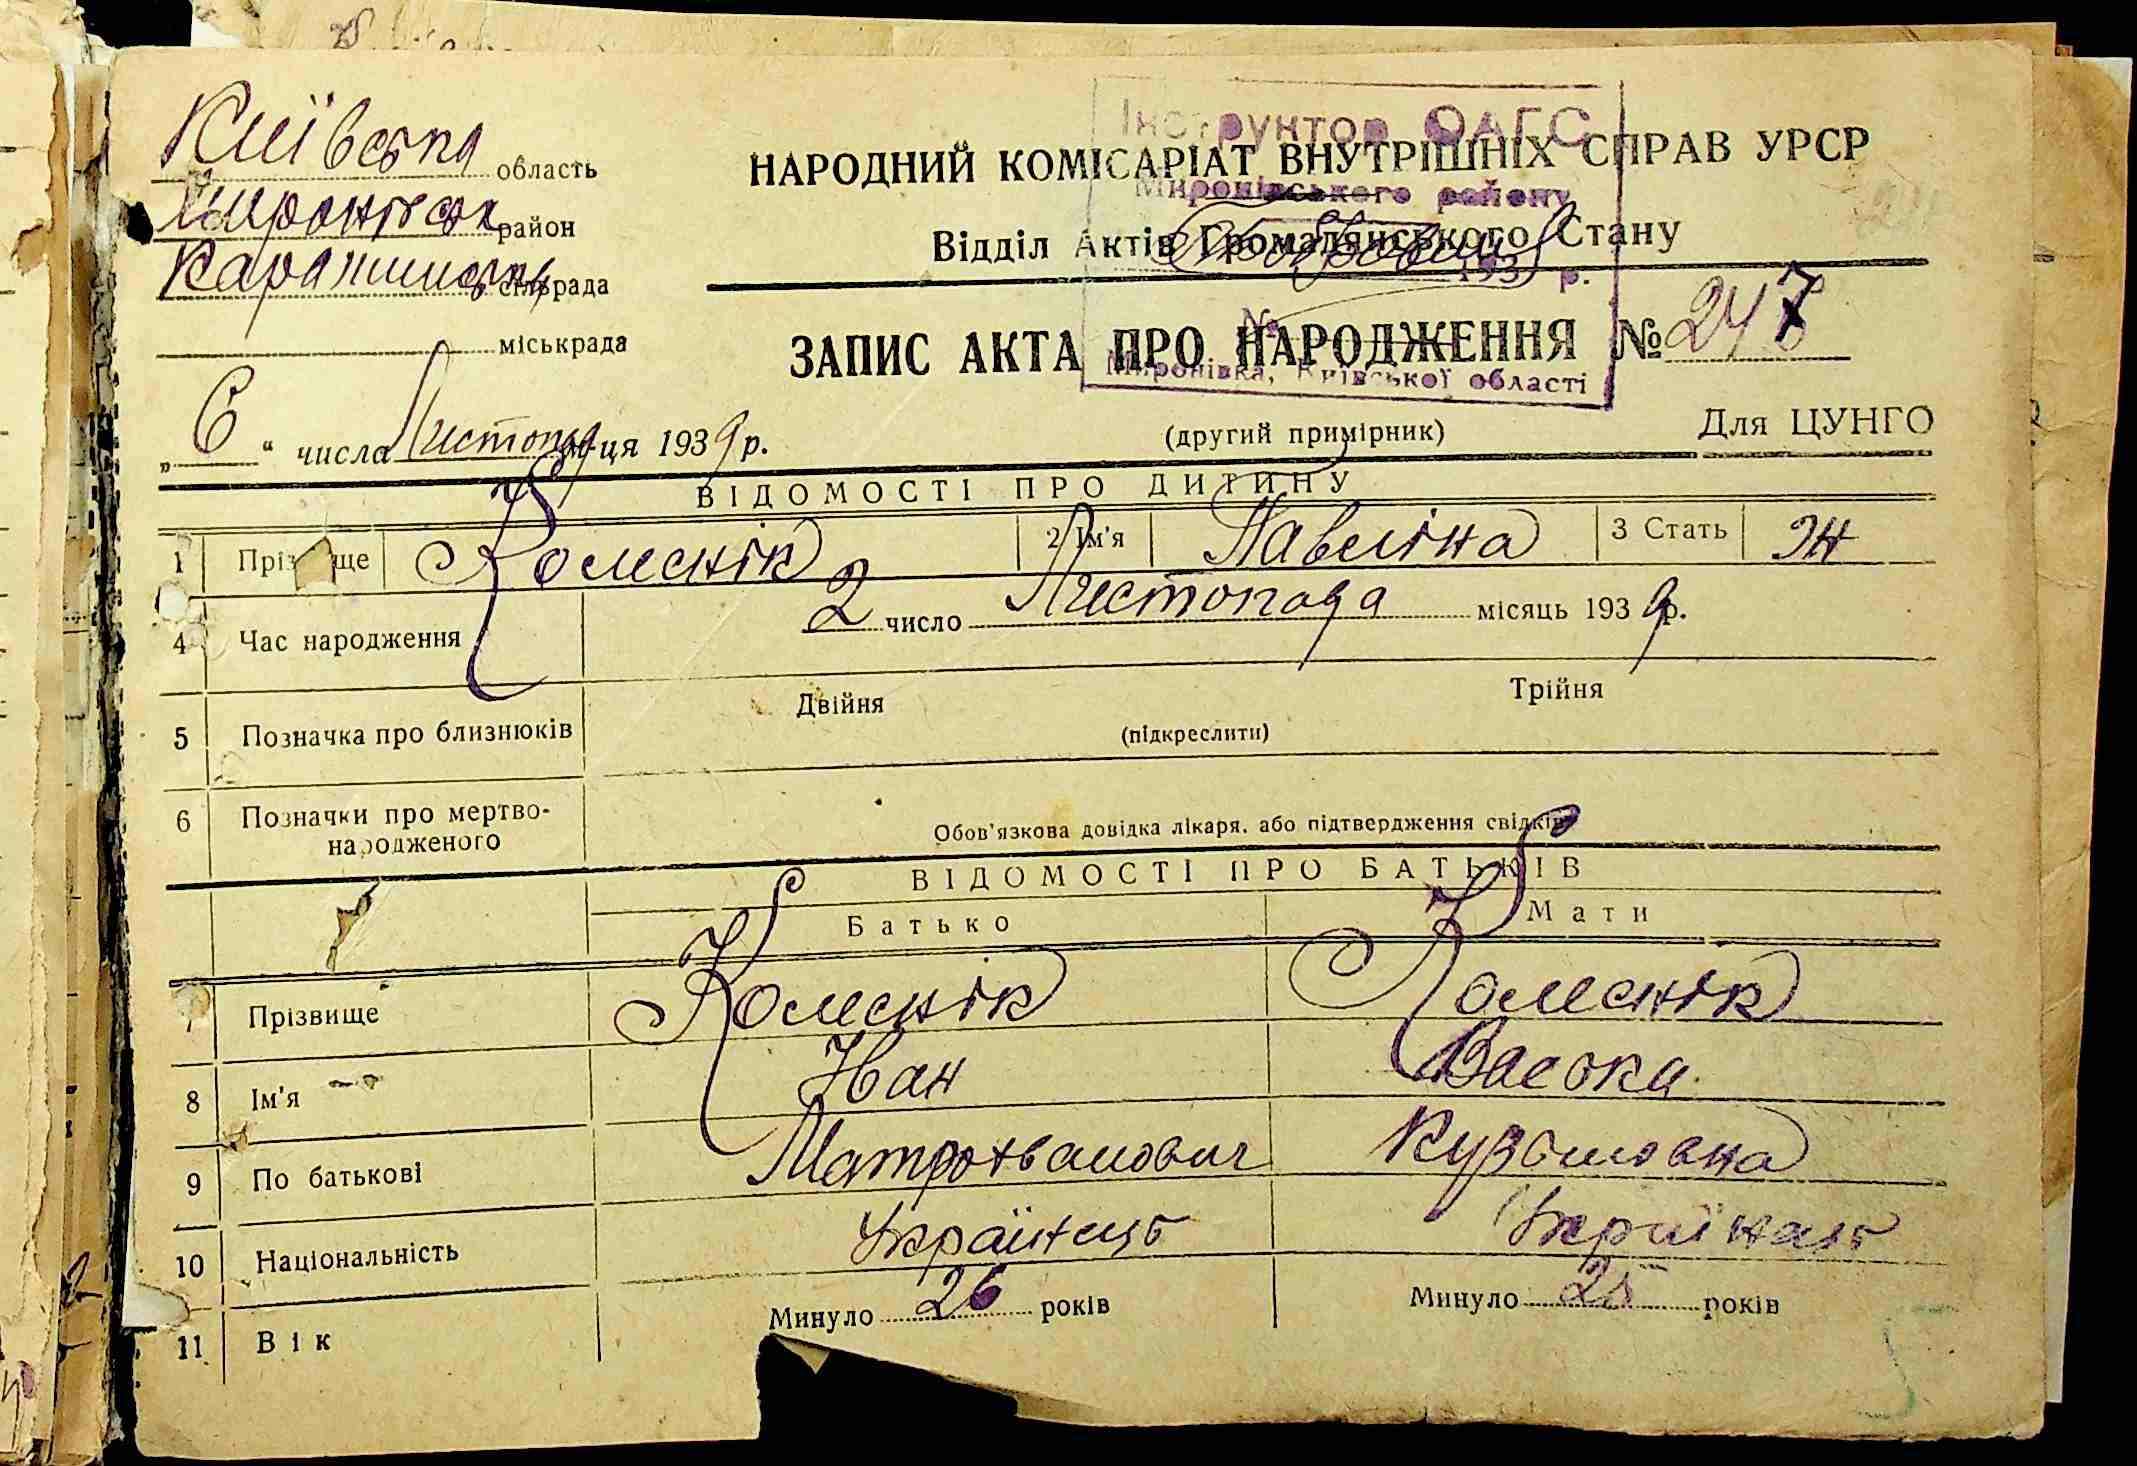 Київська область
Миронівськ район
Карапишська сільрада
міськрада
НАРОДНИЙ КОМІСАРІАТ ВНУТРІШНІХ СПРАВ УРСР
Відділ Актів Громадянського Стану
Інструктор ОАГС
Миронівського району
193 р.
№
Миронівка, Київської області
ЗАПИС АКТА ПРО НАРОДЖЕННЯ № 247
„6“ числа Листопада м-ця 1939 р.
(другий примірник)
Для ЦУНГО
ВІДОМОСТІ ПРО ДИТИНУ
1 Прізвище Колєснік 2 Ім'я Павліна 3 Стать Ж
4 Час народження 2 число Листопада місяць 1939 р.
5 Позначка про близнюків Двійня Трійня
(підкреслити)
6 Позначки про мертво-
народженого
Обов'язкова довідка лікаря, або підтвердження свідків
ВІДОМОСТІ ПРО БАТЬКІВ
Батько Мати
7 Прізвище Колєснік Колєснік
8 Ім'я Іван Васька
9 По батькові Кузьмовна
10 Національність Українець
11 Вік Минуло 26 років Минуло 25 років